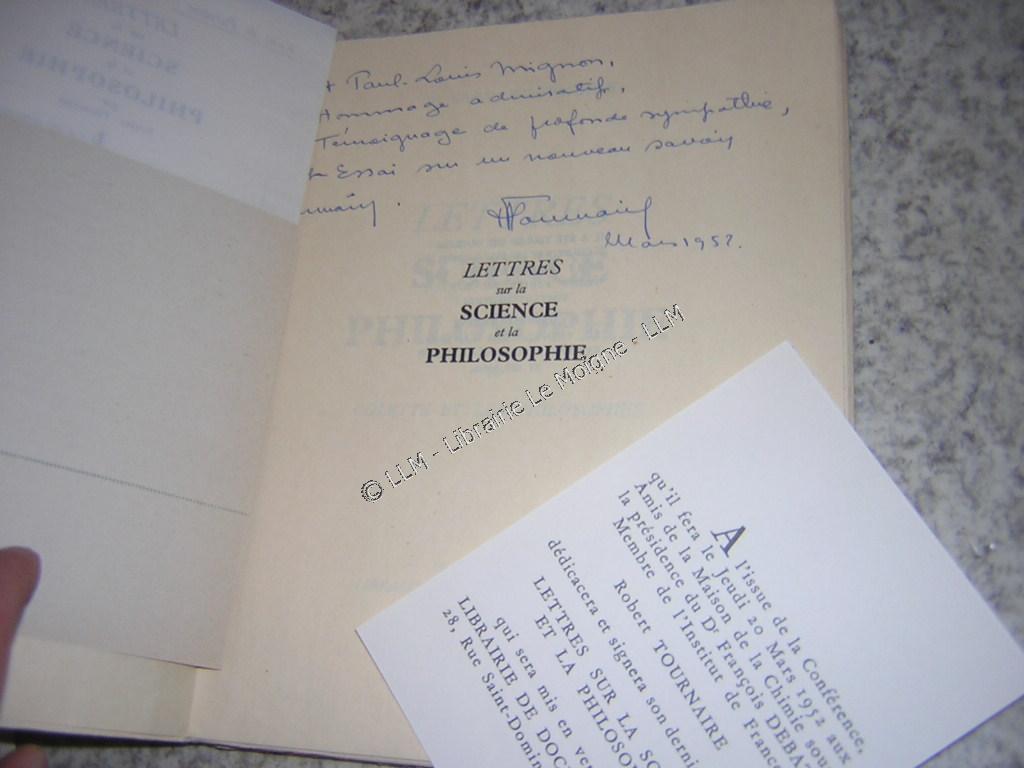 Paul-Louis Mignon,
Hommage admiratif,
Témoignage de profonde sympathie,
Essai sur un nouveau savoir
Mars 1952.
LETTRES
sur la
SCIENCE
et la
PHILOSOPHIE
© LLM - Librairie Le Moigne - LLM
A l'issue de la Conférence,
qu'il fera le Jeudi 20 Mars 1952 aux
Amis de la Maison de la Chimie sous
la présidence du Dr François DEBA
Membre de l'Institut de France
Robert TOURNAIRE
dédicacera et signera son derni
LETTRES SUR LA SC
ET LA PHILOSO
qui sera mis en ven
LIBRAIRIE DE DOC
28, Rue Saint-Domin